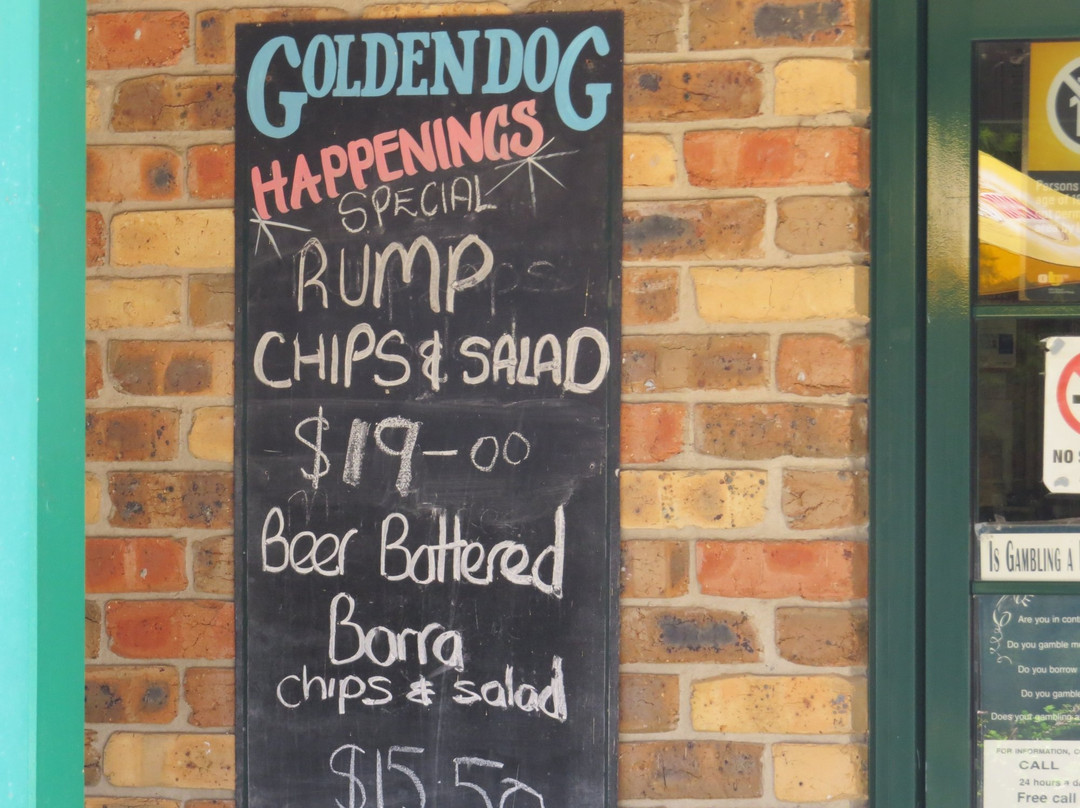 GOLDEN DOG
HAPPENINGS
SPECIAL
RUMP
CHIPS & SALAD
$19-00
Beer Battered
Barra
chips & salad
$15.50
Persons
NO
IS GAMBLING A
Are you in
Do you gamble
Do you borrow
Do you
Does your gambling
FOR INFORMATION,
CALL
24 hours a
Free call